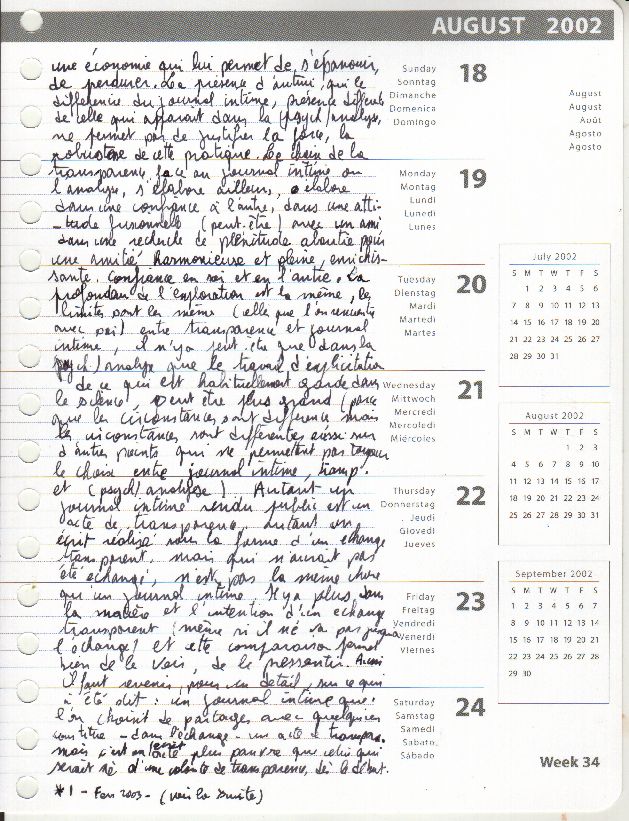 AUGUST 2002
une économie qui lui permet de s'épanouir,
de perdurer. La présence d'autrui, qui le
différencie du journal intime, présence différente
de celle qui apparait dans la (psych)analyse,
ne permet pas de justifier la force, la
robustesse de cette pratique. Le choix de la
transparence, face au journal intime ou
l'analyse, s'élabore ailleurs, s'élabore
dans une confiance à l'autre, dans une atti-
-tude fusionnelle (peut-être) avec un ami
dans une recherche de plénitude aboutie pour
une amitié harmonieuse et pleine, enrichis-
sante. Confiance en soi et en l'autre. La
profondeur de l'exploration est la même, les
limites sont les même (celles que l'on rencontre
avec soi) entre transparence et journal
intime, il n'y a peut être que dans la
(psych)analyse que le travail d'explicitation
de ce qui est habituellement gardé dans
le silence, peut être plus grand (parce
que les circonstances sont différentes mais
les circonstances sont différentes aussi sur
d'autres points qui ne permettent pas toujours
le choix entre journal intime, transp.
et (psych)analyse) Autant un
journal intime rendu public est un
acte de transparence, autant un
écrit réalisé sous la forme d'un échange
transparent, mais qui n'aurait pas
été échangé, n'est pas la même chose
qu'un journal intime. Il y a plus, dans
la matière et l'intention d'un échange
transparent (même si il ne va pas jusqu'à
l'échange) et cette comparaison permet
bien de le voir, de le pressentir. Aussi
il faut revenir, pour un détail, sur ce qui
a été dit : un journal intime que
l'on choisit de partager avec quelqu'un
constitue - dans l'échange - un acte de transpa.
mais c'est un acte plus pauvre que celui qui
serait né d'une volonté de transparence, dès le début.
*1 - Fev 2003 - (voir la suite)
Sunday 18
Sonntag
Dimanche
Domenica
Domingo
Monday 19
Montag
Lundi
Lunedi
Lunes
Tuesday 20
Dienstag
Mardi
Martedi
Martes
Wednesday 21
Mittwoch
Mercredi
Mercoledi
Miércoles
Thursday 22
Donnerstag
Jeudi
Giovedi
Jueves
Friday 23
Freitag
Vendredi
Venerdi
Viernes
Saturday 24
Samstag
Samedi
Sabato
Sábado
August
August
Août
Agosto
Agosto
July 2002
S M T W T F S
1 2 3 4 5 6
7 8 9 10 11 12 13
14 15 16 17 18 19 20
21 22 23 24 25 26 27
28 29 30 31
August 2002
S M T W T F S
1 2 3
4 5 6 7 8 9 10
11 12 13 14 15 16 17
18 19 20 21 22 23 24
25 26 27 28 29 30 31
September 2002
S M T W T F S
1 2 3 4 5 6 7
8 9 10 11 12 13 14
15 16 17 18 19 20 21
22 23 24 25 26 27 28
29 30
Week 34